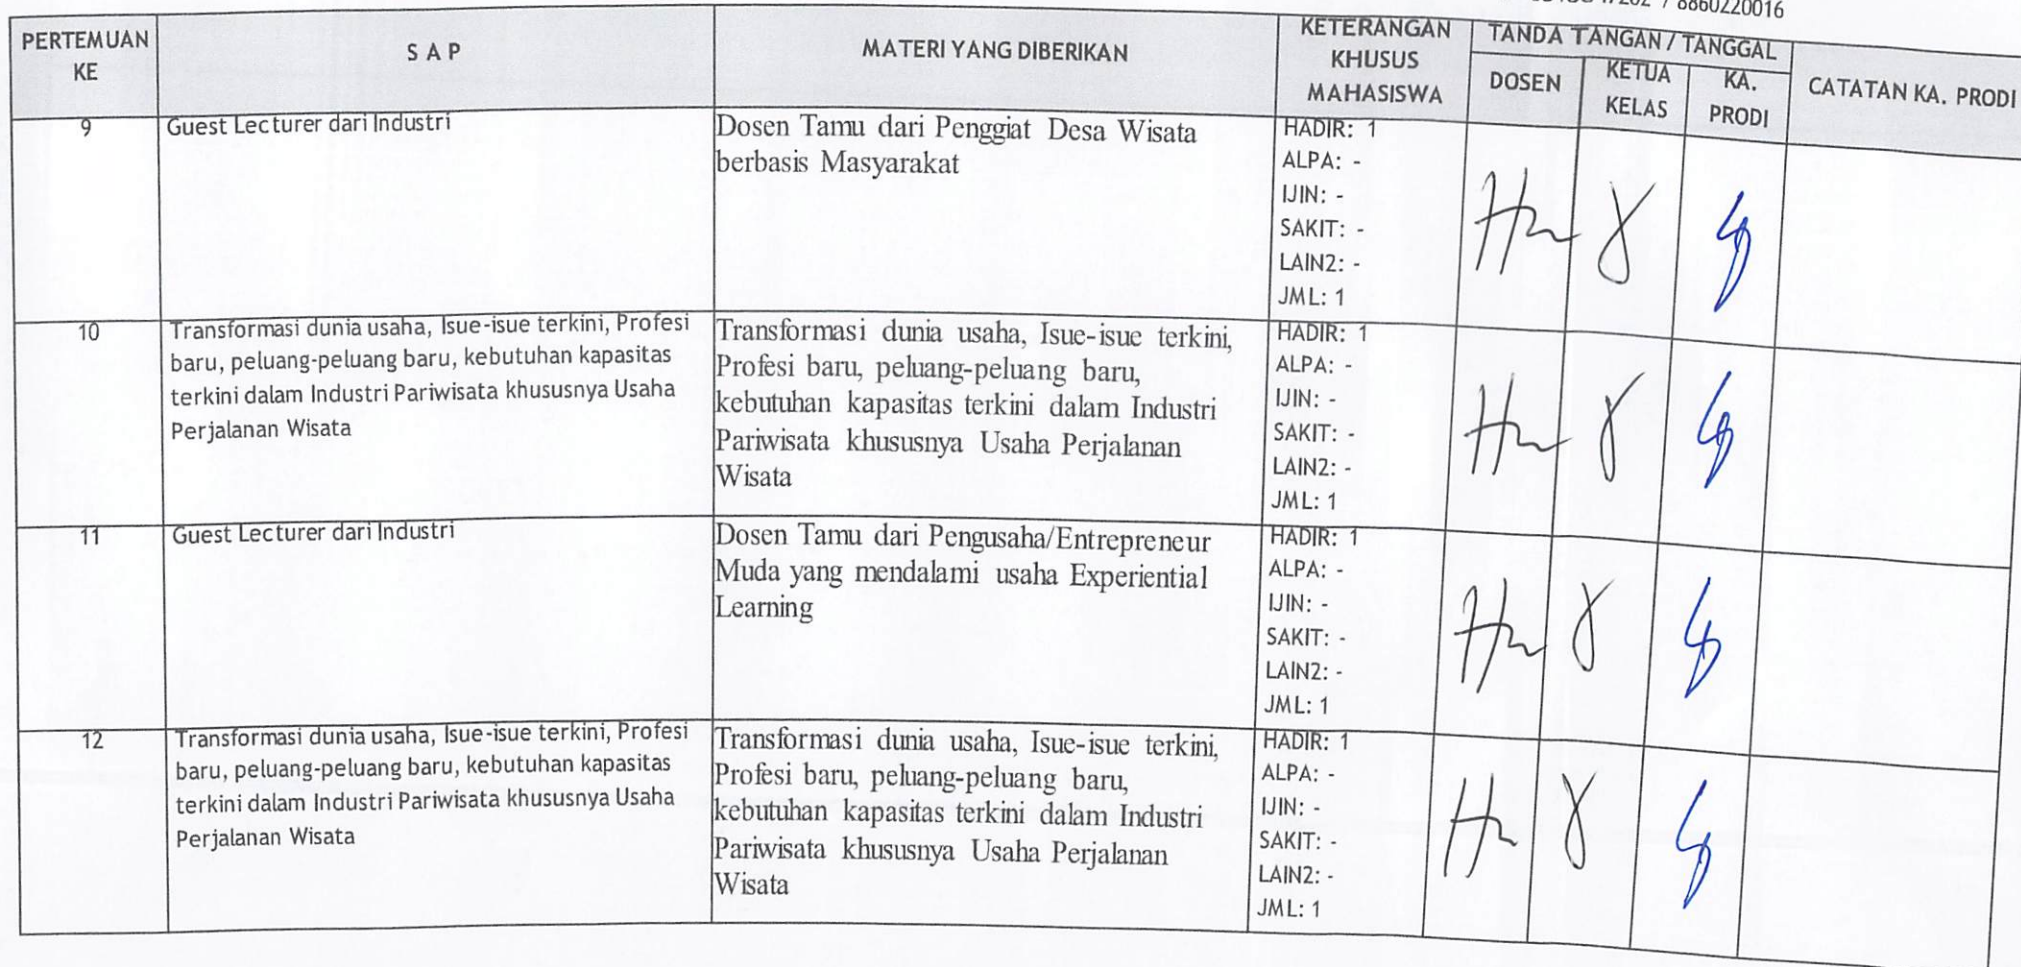 / 8860220016
PERTEMUAN KE
S A P
MATERI YANG DIBERIKAN
KETERANGAN KHUSUS MAHASISWA
TANDA TANGAN / TANGGAL
DOSEN
KETUA KELAS
KA. PRODI
CATATAN KA. PRODI
9
Guest Lecturer dari Industri
Dosen Tamu dari Penggiat Desa Wisata
berbasis Masyarakat
HADIR: 1
ALPA: -
IJIN: -
SAKIT: -
LAIN2: -
JML: 1
10
Transformasi dunia usaha, Isue-isue terkini, Profesi
baru, peluang-peluang baru, kebutuhan kapasitas
terkini dalam Industri Pariwisata khususnya Usaha
Perjalanan Wisata
Transformasi dunia usaha, Isue-isue terkini,
Profesi baru, peluang-peluang baru,
kebutuhan kapasitas terkini dalam Industri
Pariwisata khususnya Usaha Perjalanan
Wisata
HADIR: 1
ALPA: -
IJIN: -
SAKIT: -
LAIN2: -
JML: 1
11
Guest Lecturer dari Industri
Dosen Tamu dari Pengusaha/Entrepreneur
Muda yang mendalami usaha Experiential
Learning
HADIR: 1
ALPA: -
IJIN: -
SAKIT: -
LAIN2: -
JML: 1
12
Transformasi dunia usaha, Isue-isue terkini, Profesi
baru, peluang-peluang baru, kebutuhan kapasitas
terkini dalam Industri Pariwisata khususnya Usaha
Perjalanan Wisata
Transformasi dunia usaha, Isue-isue terkini,
Profesi baru, peluang-peluang baru,
kebutuhan kapasitas terkini dalam Industri
Pariwisata khususnya Usaha Perjalanan
Wisata
HADIR: 1
ALPA: -
IJIN: -
SAKIT: -
LAIN2: -
JML: 1